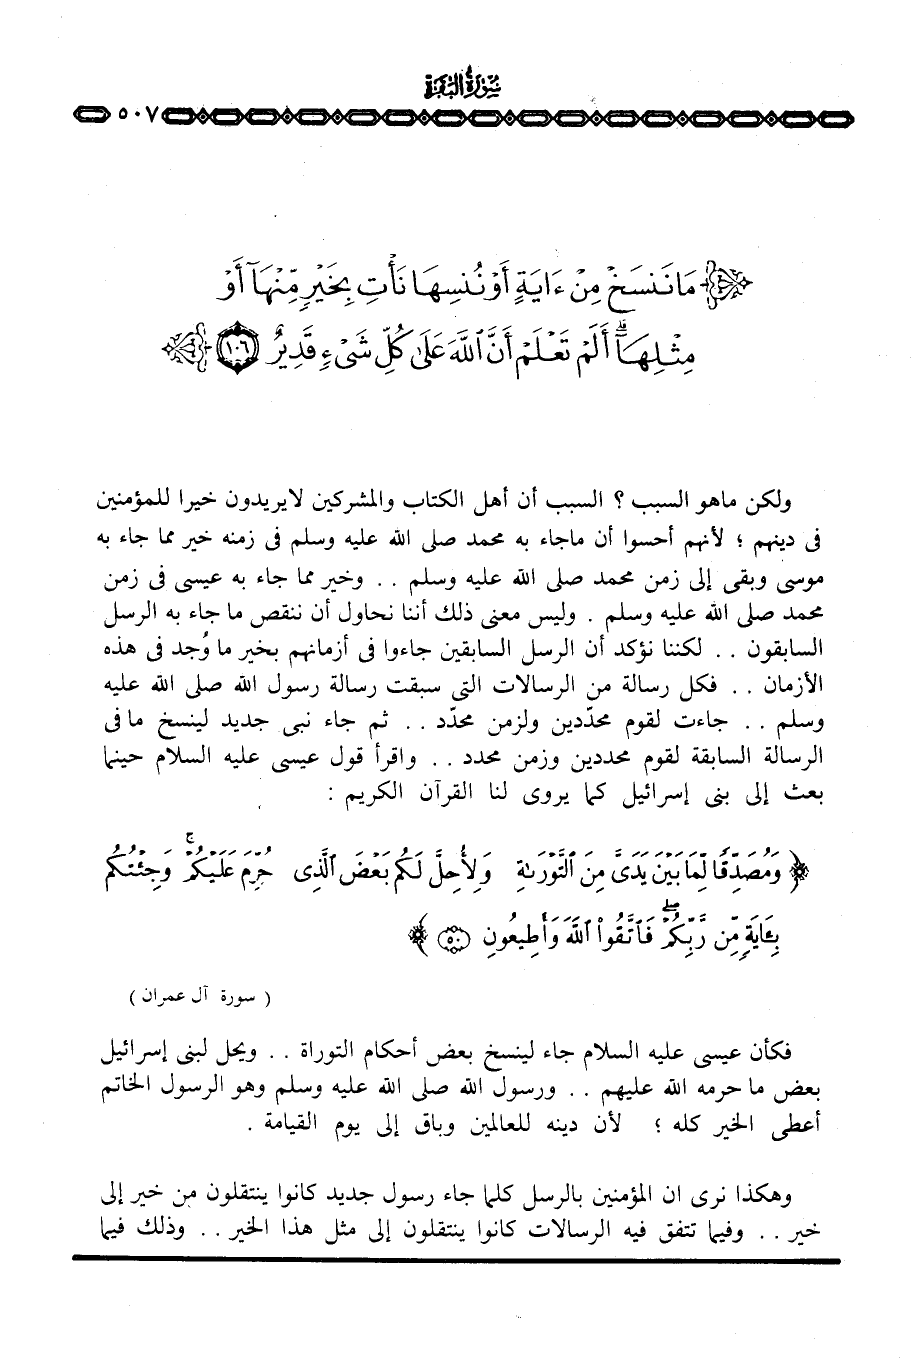 سورة البقرة
٥٠٧
مَا نَنسَخْ مِنْ ءَايَةٍ أَوْ نُنسِهَا نَأْتِ بِخَيْرٍ مِّنْهَآ أَوْ
مِثْلِهَآ ۗ أَلَمْ تَعْلَمْ أَنَّ ٱللَّهَ عَلَىٰ كُلِّ شَىْءٍ قَدِيرٌ ١٠٦
ولكن ماهو السبب ؟ السبب أن أهل الكتاب والمشركين لايريدون خيرا للمؤمنين
فى دينهم ؛ لأنهم أحسوا أن ماجاء به محمد صلى الله عليه وسلم فى زمنه خير مما جاء به
موسى وبقى إلى زمن محمد صلى الله عليه وسلم . . وخير مما جاء به عيسى فى زمن
محمد صلى الله عليه وسلم . وليس معنى ذلك أننا نحاول أن ننقص ما جاء به الرسل
السابقون . . لكننا نؤكد أن الرسل السابقين جاءوا فى أزمانهم بخير ما وُجد فى هذه
الأزمان . . فكل رسالة من الرسالات التى سبقت رسالة رسول الله صلى الله عليه
وسلم . . جاءت لقوم محدّدين ولزمن محدّد . . ثم جاء نبى جديد لينسخ ما فى
الرسالة السابقة لقوم محددين وزمن محدد . . واقرأ قول عيسى عليه السلام حينما
بعث إلى بنى إسرائيل كما يروى لنا القرآن الكريم :
﴿ وَمُصَدِّقًا لِّمَا بَيْنَ يَدَىَّ مِنَ ٱلتَّوْرَىٰةِ وَلِأُحِلَّ لَكُم بَعْضَ ٱلَّذِى حُرِّمَ عَلَيْكُمْ ۚ وَجِئْتُكُم
بِـَٔايَةٍ مِّن رَّبِّكُمْ ۖ فَٱتَّقُوا۟ ٱللَّهَ وَأَطِيعُونِ ٥٠ ﴾
( سورة آل عمران )
فكأن عيسى عليه السلام جاء لينسخ بعض أحكام التوراة . . ويحل لبنى إسرائيل
بعض ما حرمه الله عليهم . . ورسول الله صلى الله عليه وسلم وهو الرسول الخاتم
أعطى الخير كله ؛ لأن دينه للعالمين وباق إلى يوم القيامة .
وهكذا نرى ان المؤمنين بالرسل كلما جاء رسول جديد كانوا ينتقلون من خير إلى
خير . . وفيما تتفق فيه الرسالات كانوا ينتقلون إلى مثل هذا الخير . . وذلك فيما